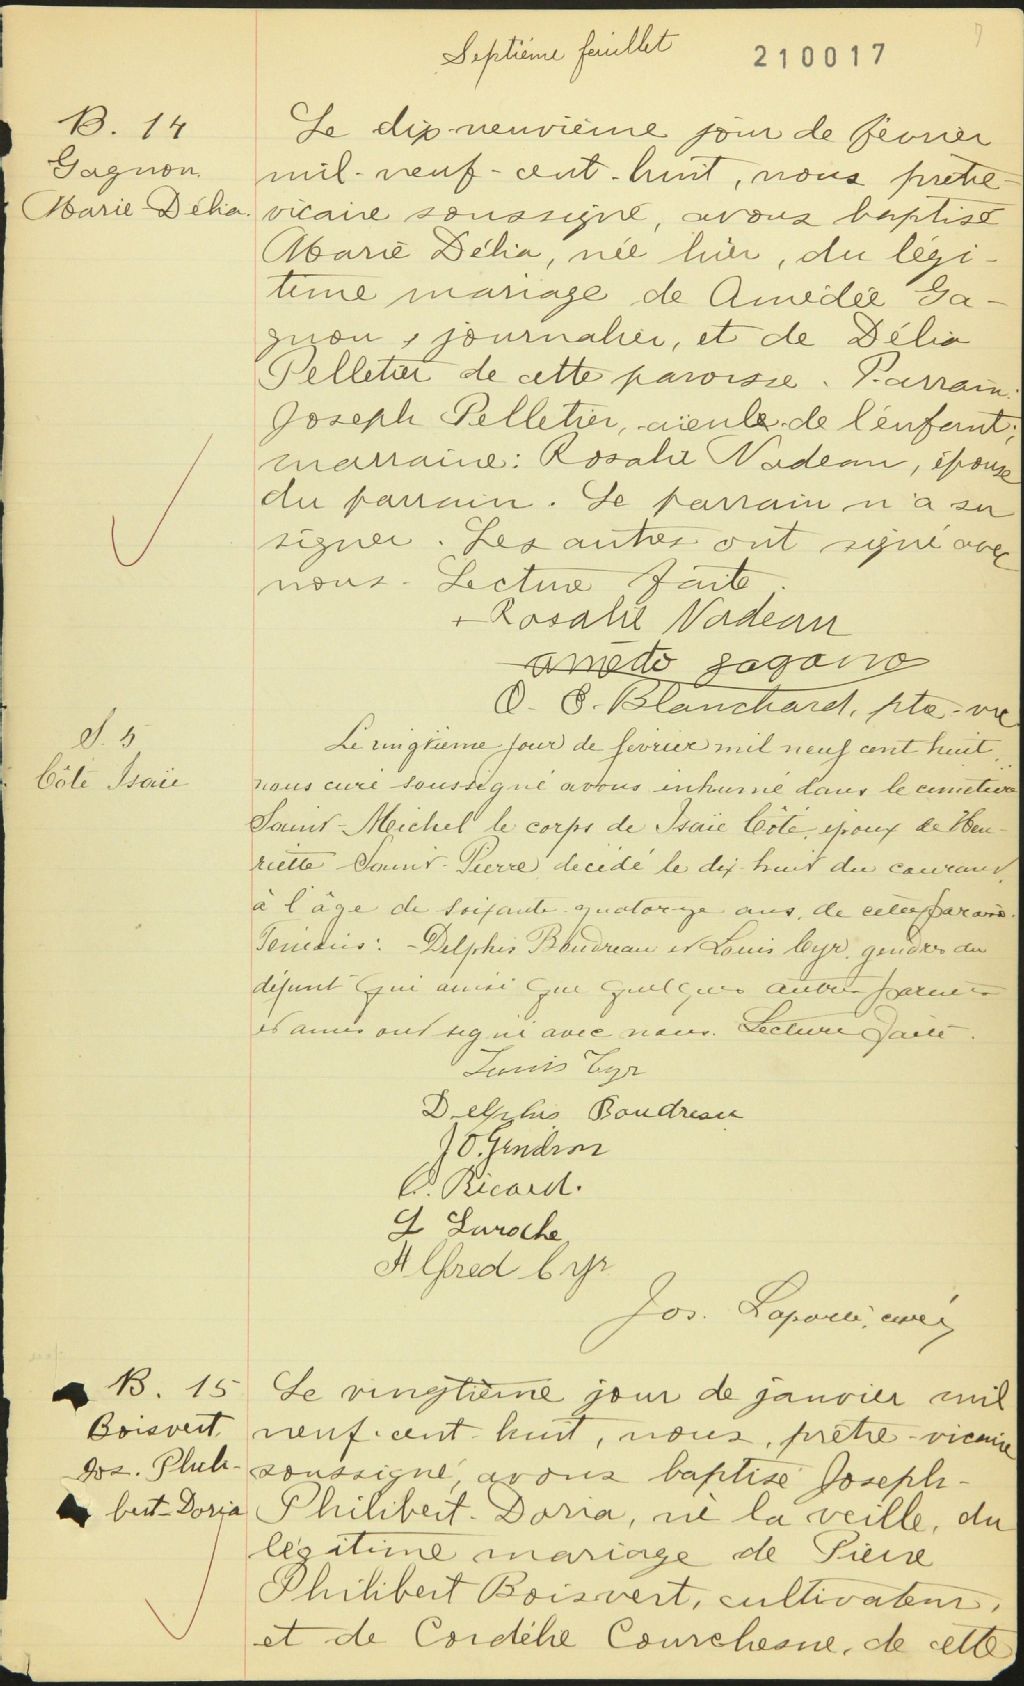 Septième feuillet
210017
7
B. 14
Gagnon
Marie-Délia.
Le dix-neuvième jour de février
mil-neuf-cent-huit, nous prêtre-
vicaire soussigné, avons baptisé
Marie Délia, née hier, du légi-
time mariage de Amédée Ga-
gnon, journalier, et de Délia
Pelletier de cette paroisse. Parrain:
Joseph Pelletier, aïeul de l'enfant;
marraine: Rosalie Nadeau, épouse
du parrain. Le parrain n'a su
signer. Les autres ont signé avec
nous. Lecture faite.
+ Rosalie Nadeau
O. E. Blanchard, ptre-vic
S. 5
Côté Isaïe
Le vingtième jour de février mil neuf cent huit
nous curé soussigné avons inhumé dans le cimetière
Saint-Michel le corps de Isaïe Côté, époux de Hen-
riette Saint-Pierre décédé le dix-huit du courant,
à l'âge de soixante-quatorze ans, de cette paroisse.
Témoins: - Delphis Boudreau et Louis Cyr, gendres du
défunt qui ainsi que quelques autres parents
et amis ont signé avec nous. Lecture faite.
Louis Cyr
Delphis Boudreau
J O. Gendron
C. Ricard.
L Laroche
Alfred Cyr
Jos. Laporte, curé
B. 15
Boisvert,
Jos. Phili-
bert-Doria
Le vingtième jour de janvier mil
neuf-cent-huit, nous, prêtre-vicaire
soussigné, avons baptisé Joseph-
Philibert-Doria, né la veille, du
légitime mariage de Pierre
Philibert Boisvert, cultivateur,
et de Cordélie Courchesne, de cette